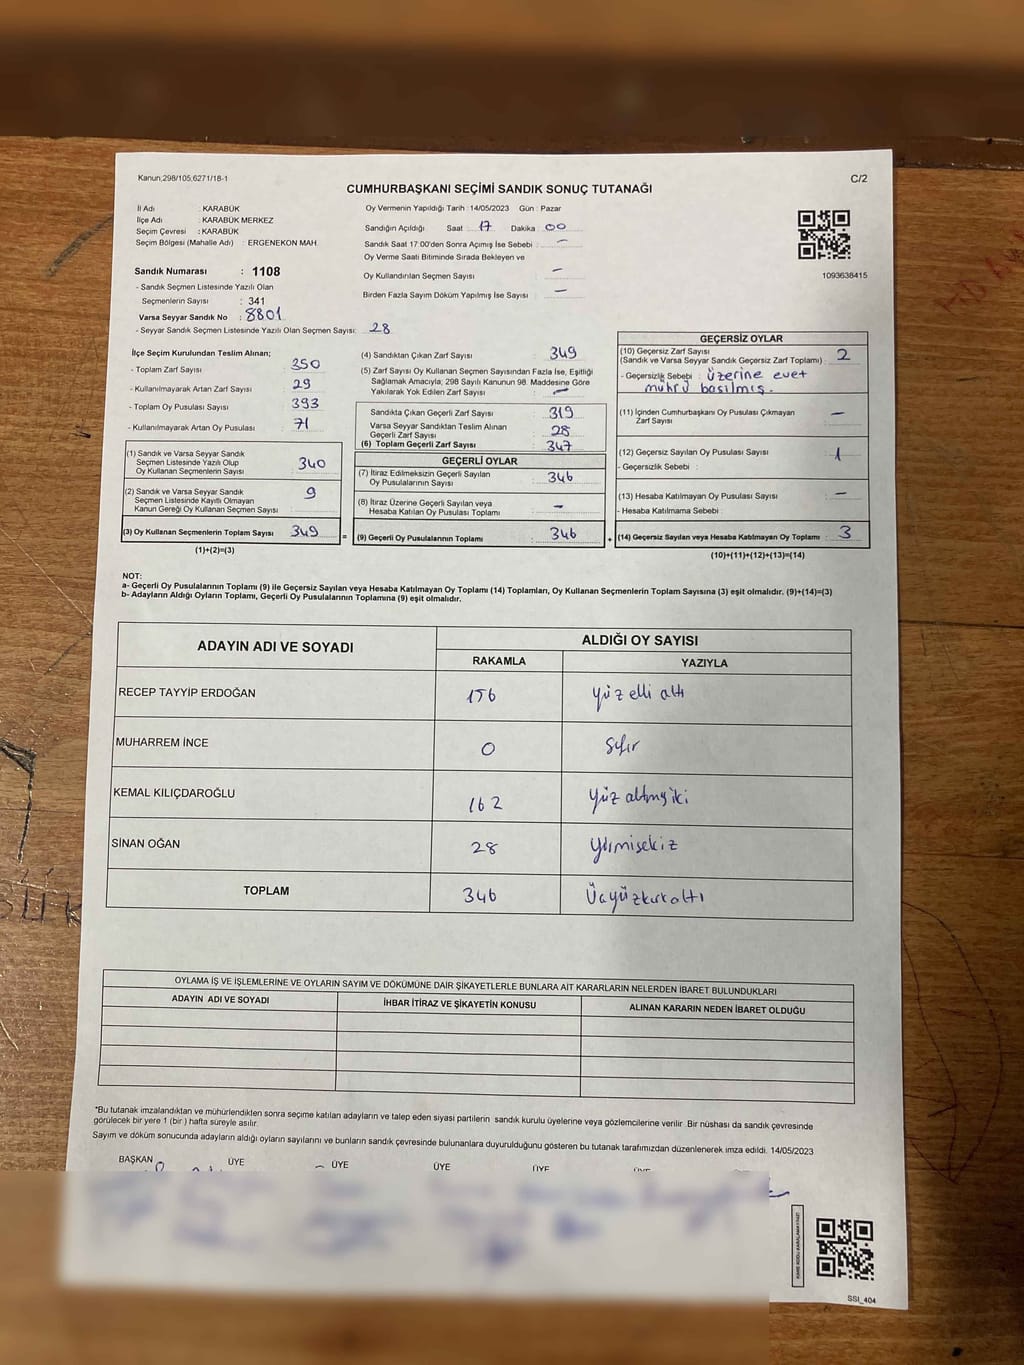 Kanun,298/105,6271/18-1
C/2
CUMHURBAŞKANI SEÇİMİ SANDIK SONUÇ TUTANAĞI
İl Adı : KARABÜK
İlçe Adı : KARABÜK MERKEZ
Seçim Çevresi : KARABÜK
Seçim Bölgesi (Mahalle Adı) : ERGENEKON MAH.
Oy Vermenin Yapıldığı Tarih : 14/05/2023 Gün : Pazar
Sandığın Açıldığı Saat : 17 Dakika : 00
Sandık Saat 17:00'den Sonra Açımış İse Sebebi : -
Oy Verme Saati Bitiminde Sırada Bekleyen ve
Oy Kullandırılan Seçmen Sayısı : -
Birden Fazla Sayım Döküm Yapılmış İse Sayısı : -
1093638415
Sandık Numarası : 1108
- Sandık Seçmen Listesinde Yazılı Olan
Seçmenlerin Sayısı : 341
Varsa Seyyar Sandık No : 8801
- Seyyar Sandık Seçmen Listesinde Yazılı Olan Seçmen Sayısı: 28
İlçe Seçim Kurulundan Teslim Alınan;
- Toplam Zarf Sayısı : 350
- Kullanılmayarak Artan Zarf Sayısı : 29
- Toplam Oy Pusulası Sayısı : 393
- Kullanılmayarak Artan Oy Pusulası : 71
(1) Sandık ve Varsa Seyyar Sandık
Seçmen Listesinde Yazılı Olup
Oy Kullanan Seçmenlerin Sayısı : 340
(2) Sandık ve Varsa Seyyar Sandık
Seçmen Listesinde Kayıtlı Olmayan
Kanun Gereği Oy Kullanan Seçmen Sayısı : 9
(3) Oy Kullanan Seçmenlerin Toplam Sayısı : 349
(1)+(2)=(3)
=
(4) Sandıktan Çıkan Zarf Sayısı : 349
(5) Zarf Sayısı Oy Kullanan Seçmen Sayısından Fazla İse, Eşitliği
Sağlamak Amacıyla; 298 Sayılı Kanunun 98. Maddesine Göre
Yakılarak Yok Edilen Zarf Sayısı : -
Sandıkta Çıkan Geçerli Zarf Sayısı : 319
Varsa Seyyar Sandıktan Teslim Alınan
Geçerli Zarf Sayısı : 28
(6) Toplam Geçerli Zarf Sayısı : 347
GEÇERLİ OYLAR
(7) İtiraz Edilmeksizin Geçerli Sayılan
Oy Pusulalarının Sayısı : 346
(8) İtiraz Üzerine Geçerli Sayılan veya
Hesaba Katılan Oy Pusulası Toplamı : -
(9) Geçerli Oy Pusulalarının Toplamı : 346
+
GEÇERSİZ OYLAR
(10) Geçersiz Zarf Sayısı
(Sandık ve Varsa Seyyar Sandık Geçersiz Zarf Toplamı) : 2
- Geçersizlik Sebebi : üzerine evet
mührü basılmış.
(11) İçinden Cumhurbaşkanı Oy Pusulası Çıkmayan
Zarf Sayısı : -
(12) Geçersiz Sayılan Oy Pusulası Sayısı : 1
- Geçersizlik Sebebi :
(13) Hesaba Katılmayan Oy Pusulası Sayısı : -
- Hesaba Katılmama Sebebi :
(14) Geçersiz Sayılan veya Hesaba Katılmayan Oy Toplamı : 3
(10)+(11)+(12)+(13)=(14)
NOT:
a- Geçerli Oy Pusulalarının Toplamı (9) ile Geçersiz Sayılan veya Hesaba Katılmayan Oy Toplamı (14) Toplamları, Oy Kullanan Seçmenlerin Toplam Sayısına (3) eşit olmalıdır. (9)+(14)=(3)
b- Adayların Aldığı Oyların Toplamı, Geçerli Oy Pusulalarının Toplamına (9) eşit olmalıdır.
ADAYIN ADI VE SOYADI
ALDIĞI OY SAYISI
RAKAMLA YAZIYLA
RECEP TAYYİP ERDOĞAN 156 yüz elli altı
MUHARREM İNCE 0 sıfır
KEMAL KILIÇDAROĞLU 162 yüz altmış iki
SİNAN OĞAN 28 yirmisekiz
TOPLAM 346 Üçyüzkırkaltı
OYLAMA İŞ VE İŞLEMLERİNE VE OYLARIN SAYIM VE DÖKÜMÜNE DAİR ŞİKAYETLERLE BUNLARA AİT KARARLARIN NELERDEN İBARET BULUNDUKLARI
ADAYIN ADI VE SOYADI İHBAR İTİRAZ VE ŞİKAYETİN KONUSU ALINAN KARARIN NEDEN İBARET OLDUĞU
*Bu tutanak imzalandıktan ve mühürlendikten sonra seçime katılan adayların ve talep eden siyasi partilerin sandık kurulu üyelerine veya gözlemcilerine verilir. Bir nüshası da sandık çevresinde
görülecek bir yere 1 (bir) hafta süreyle asılır.
Sayım ve döküm sonucunda adayların aldığı oyların sayılarını ve bunların sandık çevresinde bulunanlara duyurulduğunu gösteren bu tutanak tarafımızdan düzenlenerek imza edildi. 14/05/2023
BAŞKAN ÜYE ÜYE ÜYE ÜYE
SSI_404